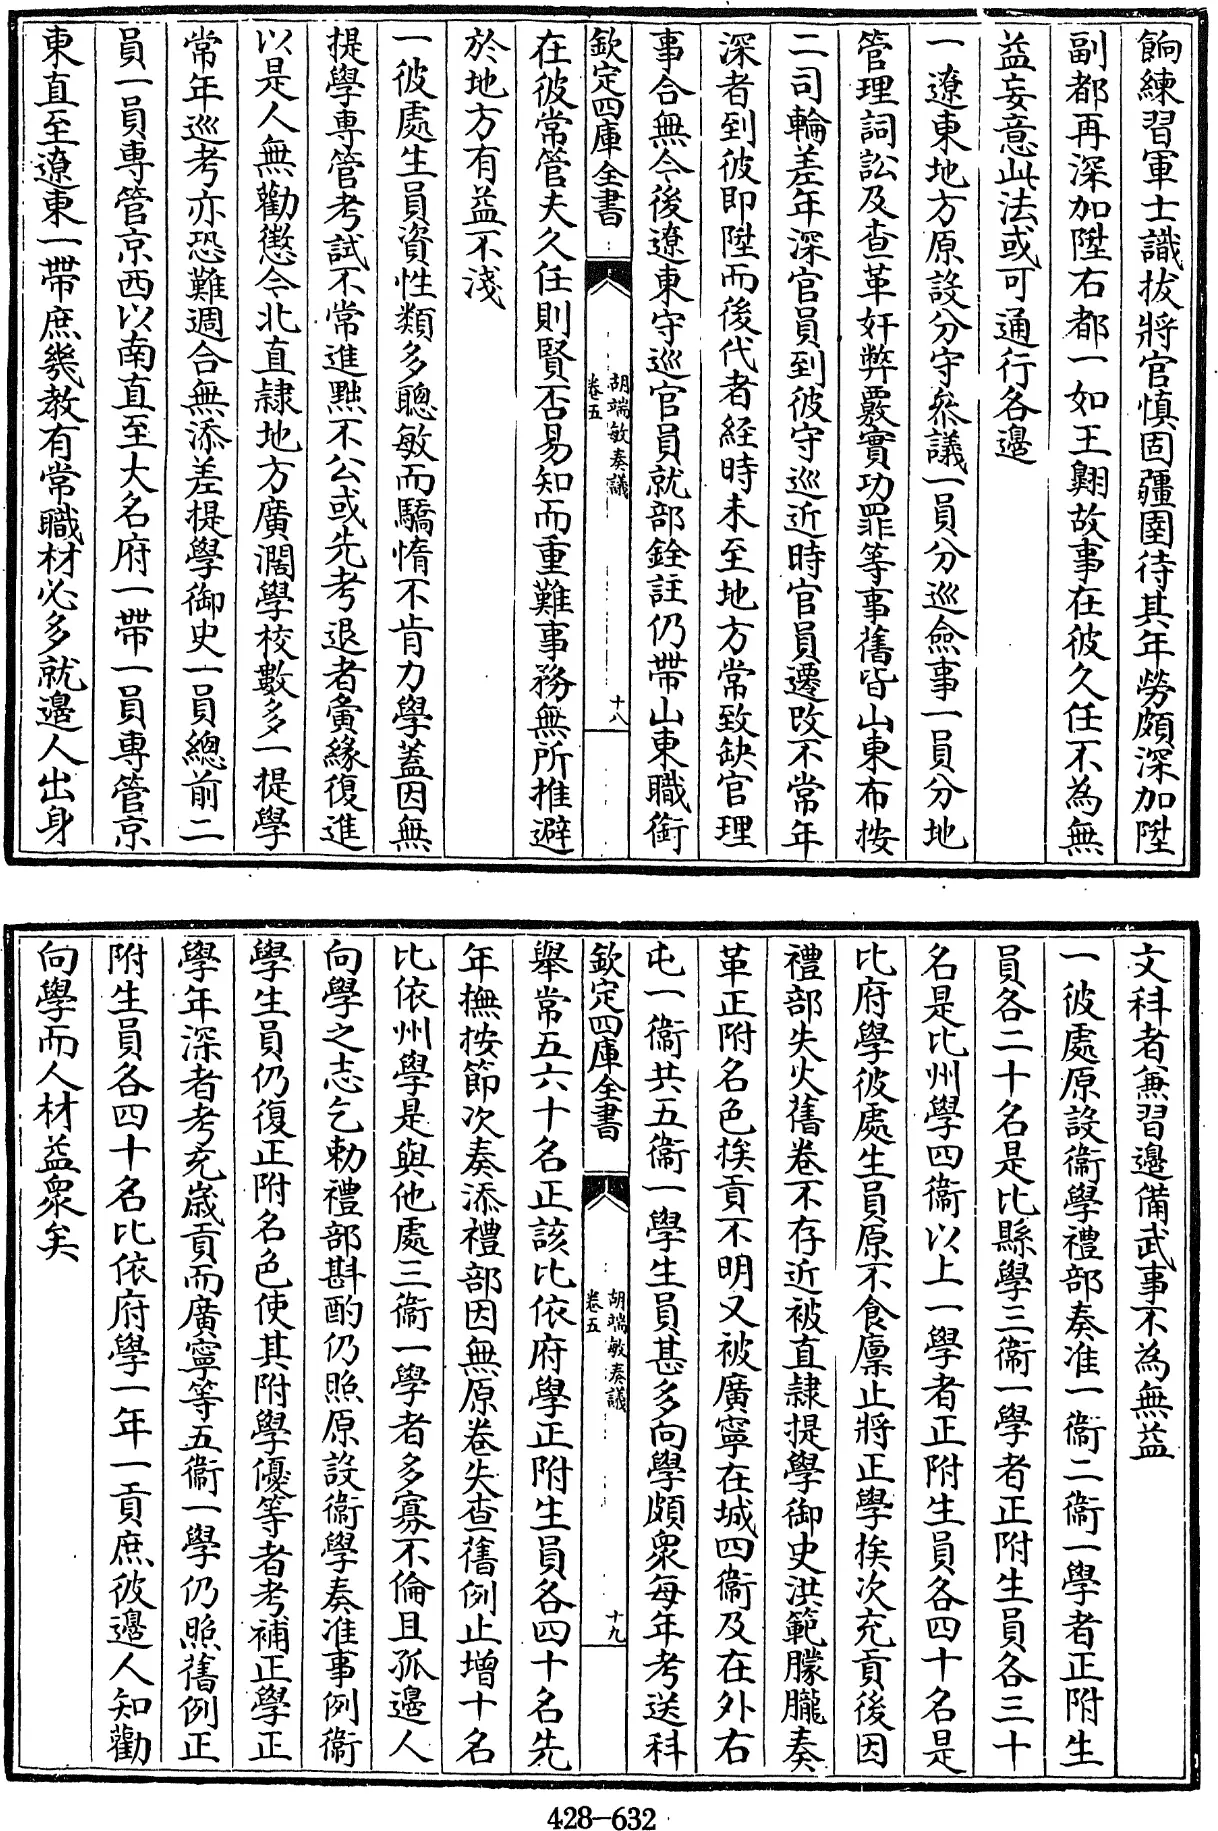 餉練習軍士識拔將官慎固疆圉待其年勞頗深加陞
副都再深加陞右都一如王翺故事在彼久任不為無
益妄意此法或可通行各邊
一遼東地方原設分守叅議一員分巡僉事一員分地
管理詞訟及查革奸弊覈實功罪等事舊皆山東布按
二司輪差年深官員到彼守巡近時官員遷改不常年
深者到彼即陞而後代者經時未至地方常致缺官理
事合無今後遼東守巡官員就部銓註仍帶山東職銜
欽定四庫全書
胡端敏奏議
卷五
十八
在彼常管夫久任則賢否易知而重難事務無所推避
於地方有益不淺
一彼處生員資性類多聰敏而驕惰不肯力學蓋因無
提學專管考試不常進黜不公或先考退者夤緣復進
以是人無勸懲今北直隸地方廣濶學校數多一提學
常年巡考亦恐難週合無添差提學御史一員總前二
員一員專管京西以南直至大名府一帶一員專管京
東直至遼東一帶庶幾教有常職材必多就邊人出身
文科者兼習邊備武事不為無益
一彼處原設衞學禮部奏准一衞二衞一學者正附生
員各二十名是比縣學三衞一學者正附生員各三十
名是比州學四衞以上一學者正附生員各四十名是
比府學彼處生員原不食廩止將正學挨次充貢後因
禮部失火舊卷不存近被直隷提學御史洪範朦朧奏
革正附名色挨貢不明又被廣寧在城四衞及在外右
屯一衞共五衞一學生員甚多向學頗衆每年考送科
欽定四庫全書
胡端敏奏議
卷五
十九
舉常五六十名正該比依府學正附生員各四十名先
年撫按節次奏添禮部因無原卷失查舊例止增十名
比依州學是與他處三衞一學者多寡不倫且孤邊人
向學之志乞勅禮部斟酌仍照原設衞學奏准事例衞
學生員仍復正附名色使其附學優等者考補正學正
學年深者考充歲貢而廣寧等五衞一學仍照舊例正
附生員各四十名比依府學一年一貢庶彼邊人知勸
向學而人材益衆矣
428-632